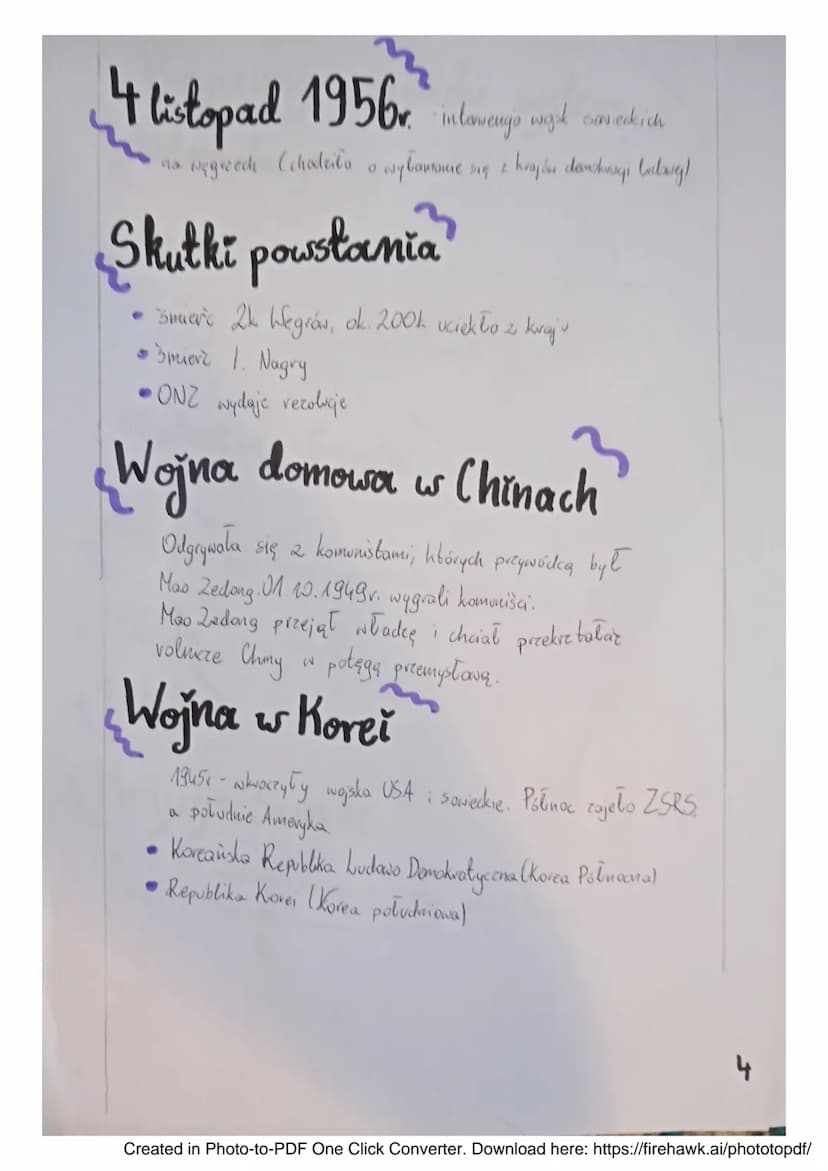 4 listopad 1956r. interwencja wojsk sowieckich
na węgrzech (chodziło o wyłamanie się z krajów demokracji ludowej)
Skutki powstania
• śmierć 2k Węgrów, ok. 200k uciekło z kraju
• śmierć I. Nagry
• ONZ wydaje rezolucje
Wojna domowa w Chinach
Odgrywała się z komunistami, których przywódcą był
Mao Zedong. 01.10.1949r. wygrali komuniści.
Mao Zedong przejął władzę i chciał przekształcić
rolnicze Chiny w potęgą przemysłową.
Wojna w Korei
1945r - wkroczyły wojska USA i sowieckie. Północ zajęło ZSRS,
a południe Ameryka.
• Koreańska Republika Ludowo Demokratyczna (Korea Północna)
• Republika Korei (Korea południowa)
4
Created in Photo-to-PDF One Click Converter. Download here: https://firehawk.ai/phototopdf/